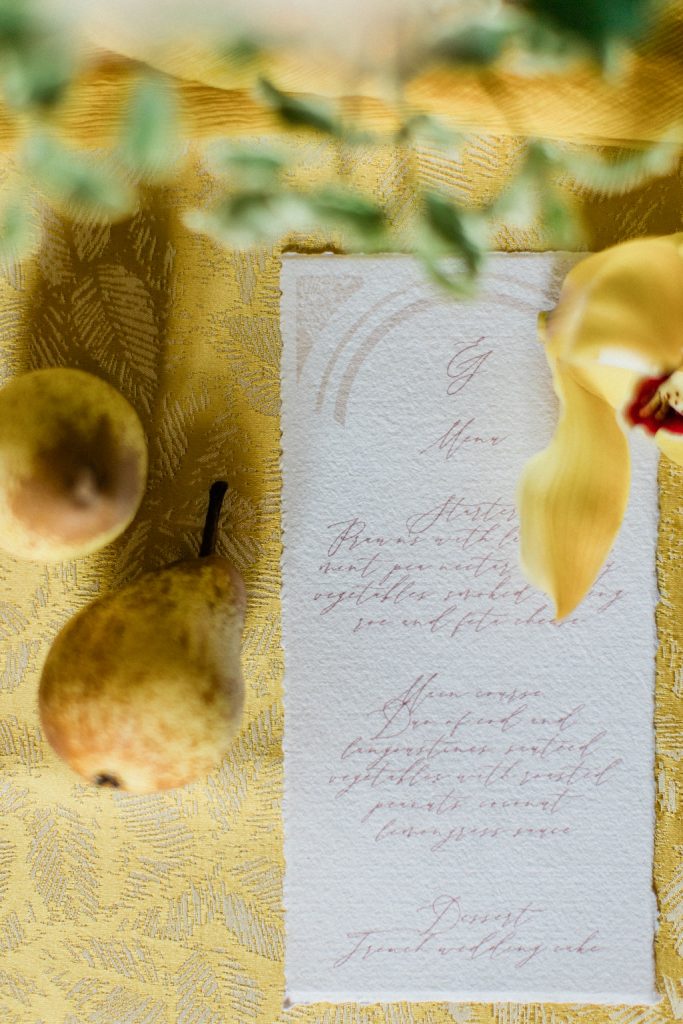 EJ
Menu
Starter
Prawns with
mint pea nectar
vegetables smoked
roe and feta cheese
Main course
Duo of cod and
langoustines sauteed
vegetables with roasted
peanuts coconut
lemongrass sauce
Dessert
French wedding cake